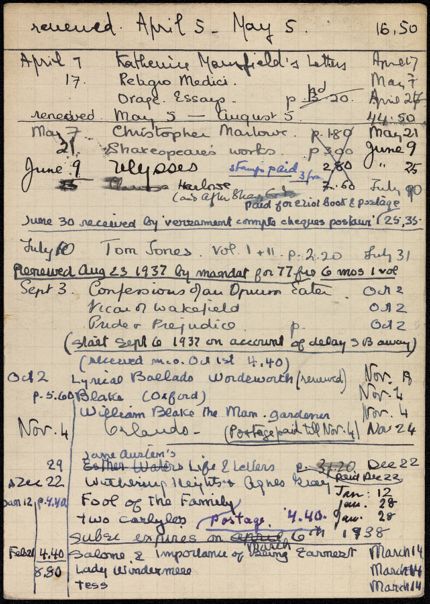 renewed. April 5 - May 5. 16,50
April 7 Katherine Mansfield's Letters April 17
17. Religio Medici. May 7
Drage. Essays. p. pd 3.20. April 27
renewed May 5 — August 5 44.50
May 7. Christopher Marlowe. p. 1.80 May 21
21 Shakespeare's works. p 3.00 June 9
June 9 Ulysses stamps paid 2.80 " 25
Harlowe 7.60 July 10
paid for Eliot book & postage
June 30 received by versement compte cheques postaux (25,35.
July 10 Tom Jones. Vol. I + II. p. 2.20 July 31
Renewed Aug 23 1937 by mandat for 77 frs 6 mos 1 vol
Sept 3. Confessions of an Opium Eater Oct 2
Vicar of Wakefield Oct 2
Pride & Prejudice. p. Oct 2
(start Sept 6 1937 on account of delay SB away)
(received m.o. Oct 1st 4.40)
Oct 2 Lyrical Ballads Wordsworth (renewed) Nov. 8
p. 5.60 Blake (Oxford) Nov. 4
William Blake the Man. gardener Nov. 4
Nov. 4 Orlando - (Postage paid till Nov. 4) Nov 24
Jane Austen's
29 Esther Waters Life & Letters p. 3.20 Dec 22
Dec 22 Wuthering Heights & Agnes Gray paid Dec 22 Jan: 12
Jan 12 p. 4.40 Fool of the Family Jan. 28
Two Carlyles Postage 4.40. Jan. 28
Subsc expires on April March 6th 1938
Feb 21 4.40 Salome, & Importance of Being Earnest March 14
8.80 Lady Windermere March 14
Tess March 14